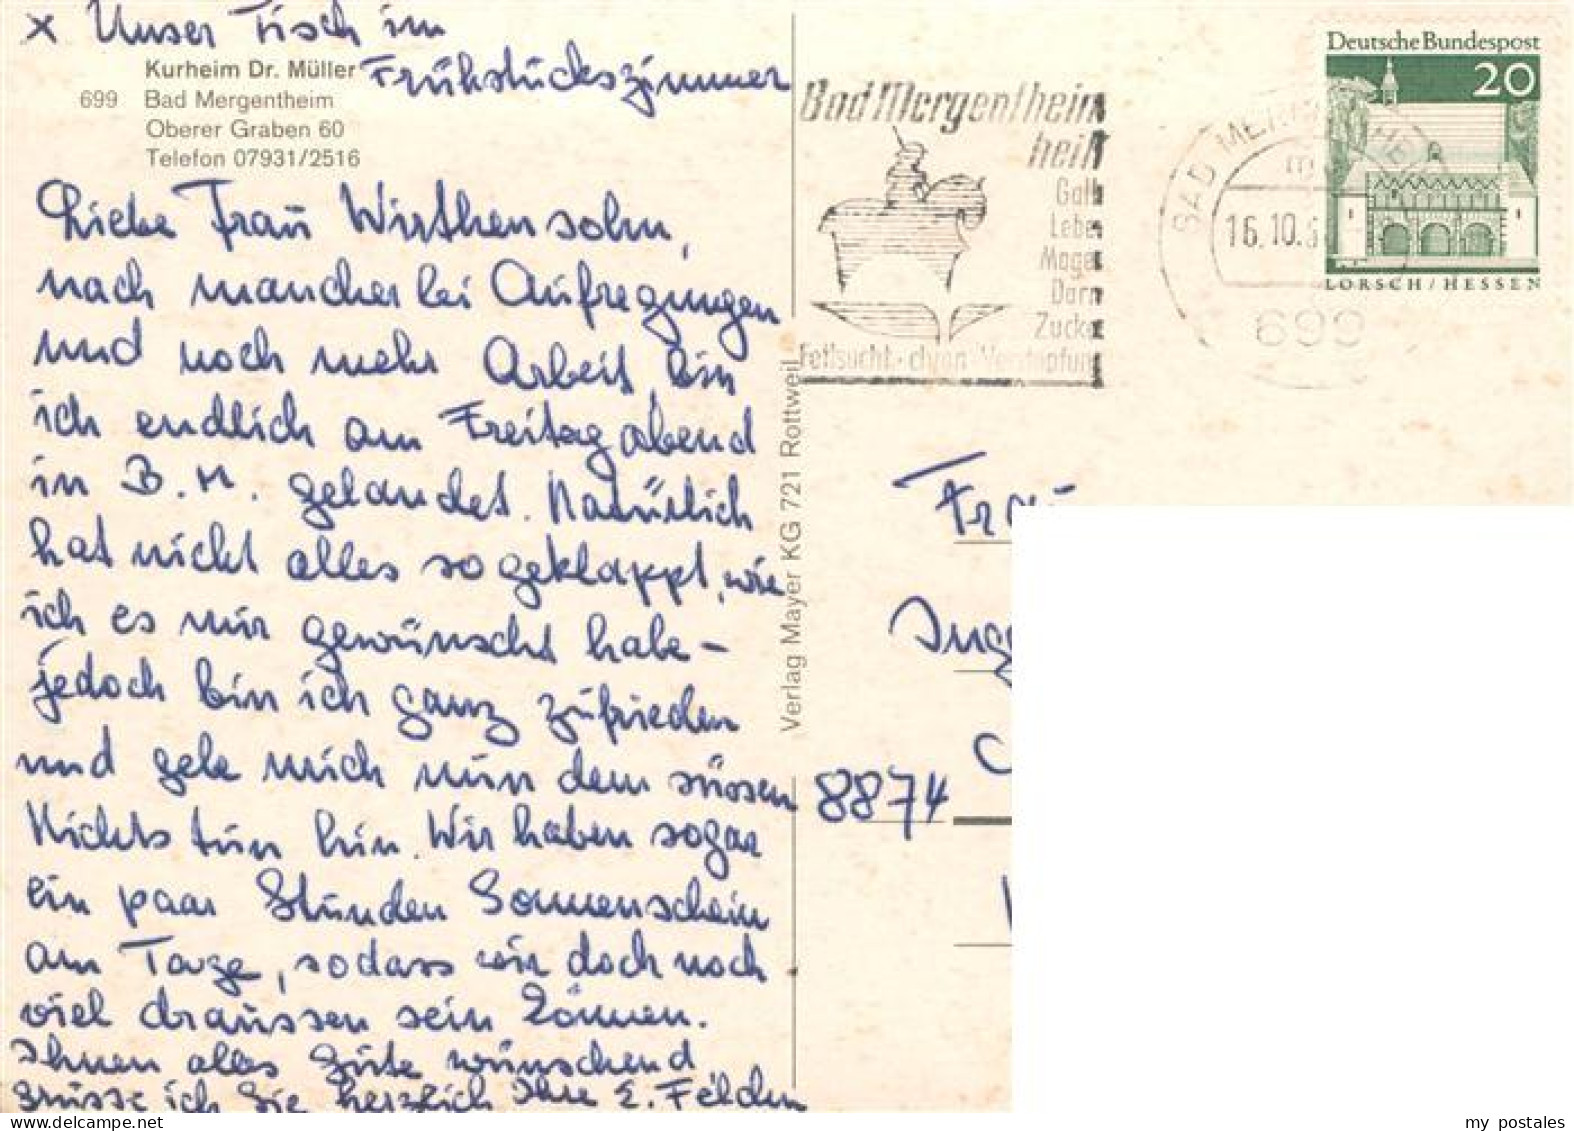 x Unser Tisch im
Frühstückszimmer
Kurheim Dr. Müller
699 Bad Mergentheim
Oberer Graben 60
Telefon 07931/2516
Liebe Frau Wirthensohn,
nach mancherlei Aufregungen
und noch mehr Arbeit bin
ich endlich am Freitag abend
in B.M. gelandet. Natürlich
hat nicht alles so geklappt, wie
ich es mir gewünscht habe –
jedoch bin ich ganz zufrieden
und gebe mich nun dem süssen
Nichts tun hin. Wir haben sogar
ein paar Stunden Sonnenschein
am Tage, sodass wir doch noch
viel draussen sein können.
Ihnen alles Gute wünschend
grüsse ich Sie herzlich Ihre E. Felden
Verlag Mayer KG 721 Rottweil
Bad Mergentheim
heilt
Galle
Leber
Magen
Darm
Zucker
Fettsucht · chron Verstopfung
BAD MERGENTHEIM
m
16.10.6
699
Deutsche Bundespost
20
LORSCH/HESSEN
Frau
8874
my postales